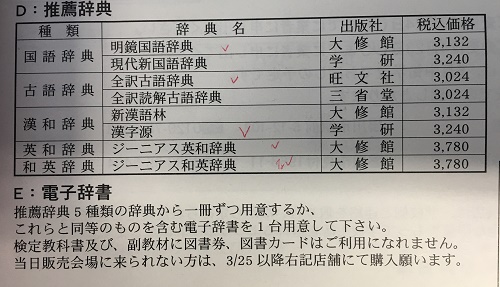 D:推薦辞典
種類 辞典名 出版社 税込価格
国語辞典 明鏡国語辞典 大修館 3,132
現代新国語辞典 学研 3,240
古語辞典 全訳古語辞典 旺文社 3,024
全訳読解古語辞典 三省堂 3,024
漢和辞典 新漢語林 大修館 3,132
漢字源 学研 3,240
英和辞典 ジーニアス英和辞典 大修館 3,780
和英辞典 ジーニアス和英辞典 大修館 3,780
E:電子辞書
推薦辞典5種類の辞典から一冊ずつ用意するか、
これらと同等のものを含む電子辞書を1台用意して下さい。
検定教科書及び、副教材に図書券、図書カードはご利用になれません。
当日販売会場に来られない方は、3/25以降右記店舗にて購入願います。